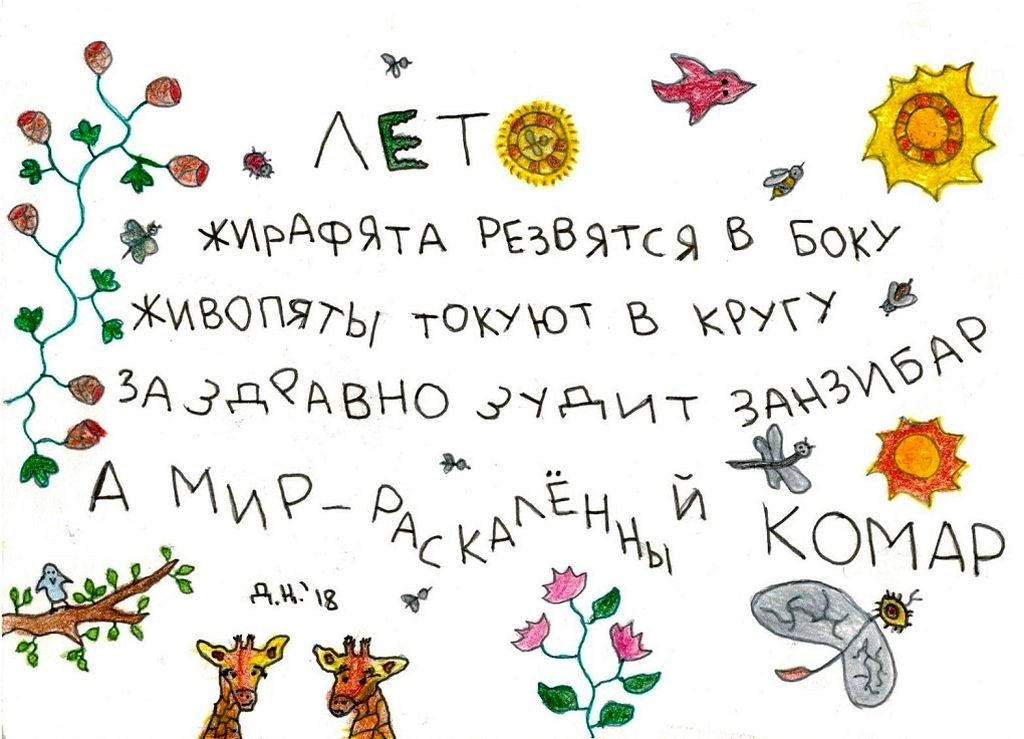 ЛЕТО
ЖИРАФЯТА РЕЗВЯТСЯ В БОКУ
ЖИВОПЯТЫ ТОКУЮТ В КРУГУ
ЗА ЗДРАВНО ЗУДИТ ЗАНЗИБАР
А МИР – РАСКАЛЁННЫЙ КОМАР
Д.Н.'18